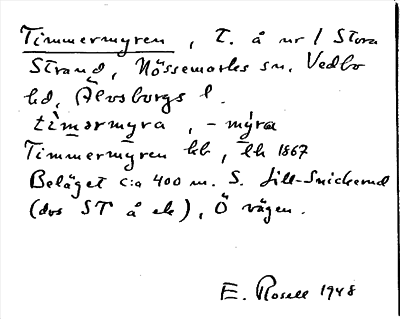 Timmermyren, t. å nr 1 Stora
Strand, Nössemarks sn. Vedbo
hd, Älvsborgs l.
timərmyra, - my̆ra
Timmermyren hb, lh 1867
Beläget c:a 400 m. S. Lill-Snickerud
(dvs ST å ek), Ö vägen.
E. Rosell 1948